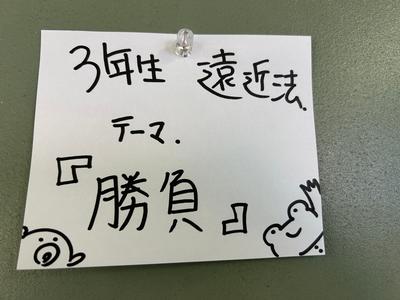 3年生 遠近法.
テーマ.
『勝負』